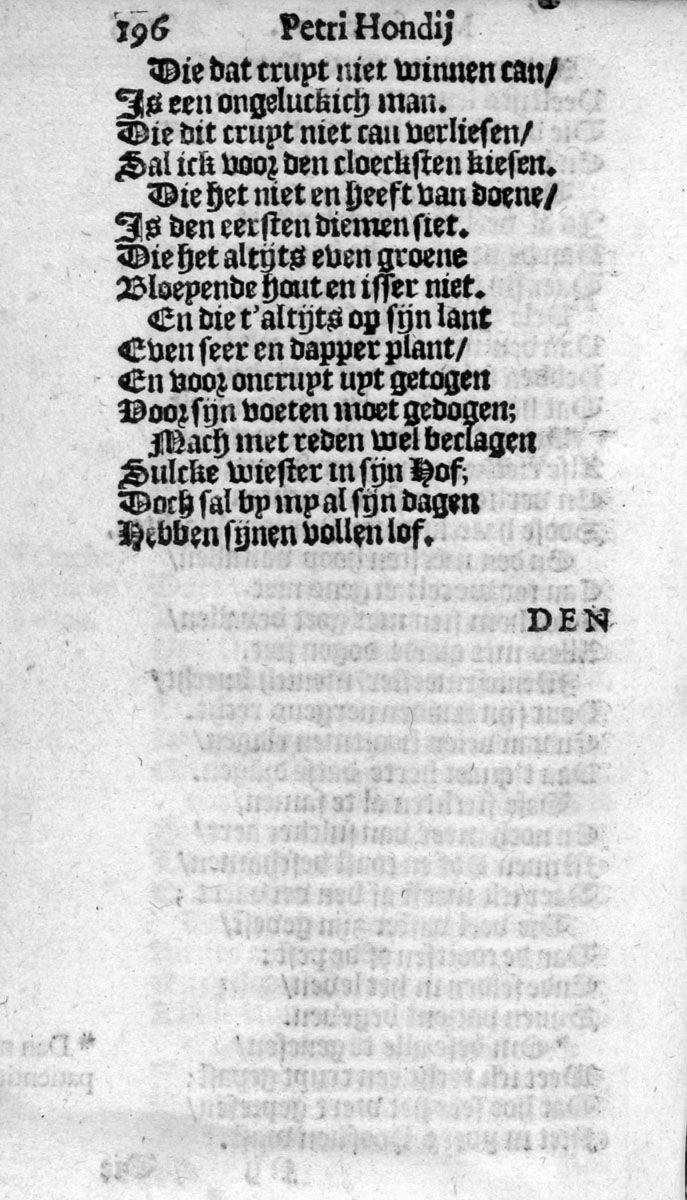 196 Petri Hondij
Die dat cruyt niet winnen can/
Is een ongeluckich man.
Die dit cruyt niet can verliesen/
Sal ick voor den cloecksten kiesen.
Die het niet en heeft van doene/
Is den eersten diemen siet.
Die het altijts even groene
Bloeyende hout en isser niet.
En die t'altijts op sijn lant
Even seer en dapper plant/
En voor oncruyt uyt getogen
Voor sijn voeten moet gedogen;
Mach met reden wel beclagen
Sulcke wiester in sijn Hof;
Doch sal by my al sijn dagen
Hebben sijnen vollen lof.
DEN